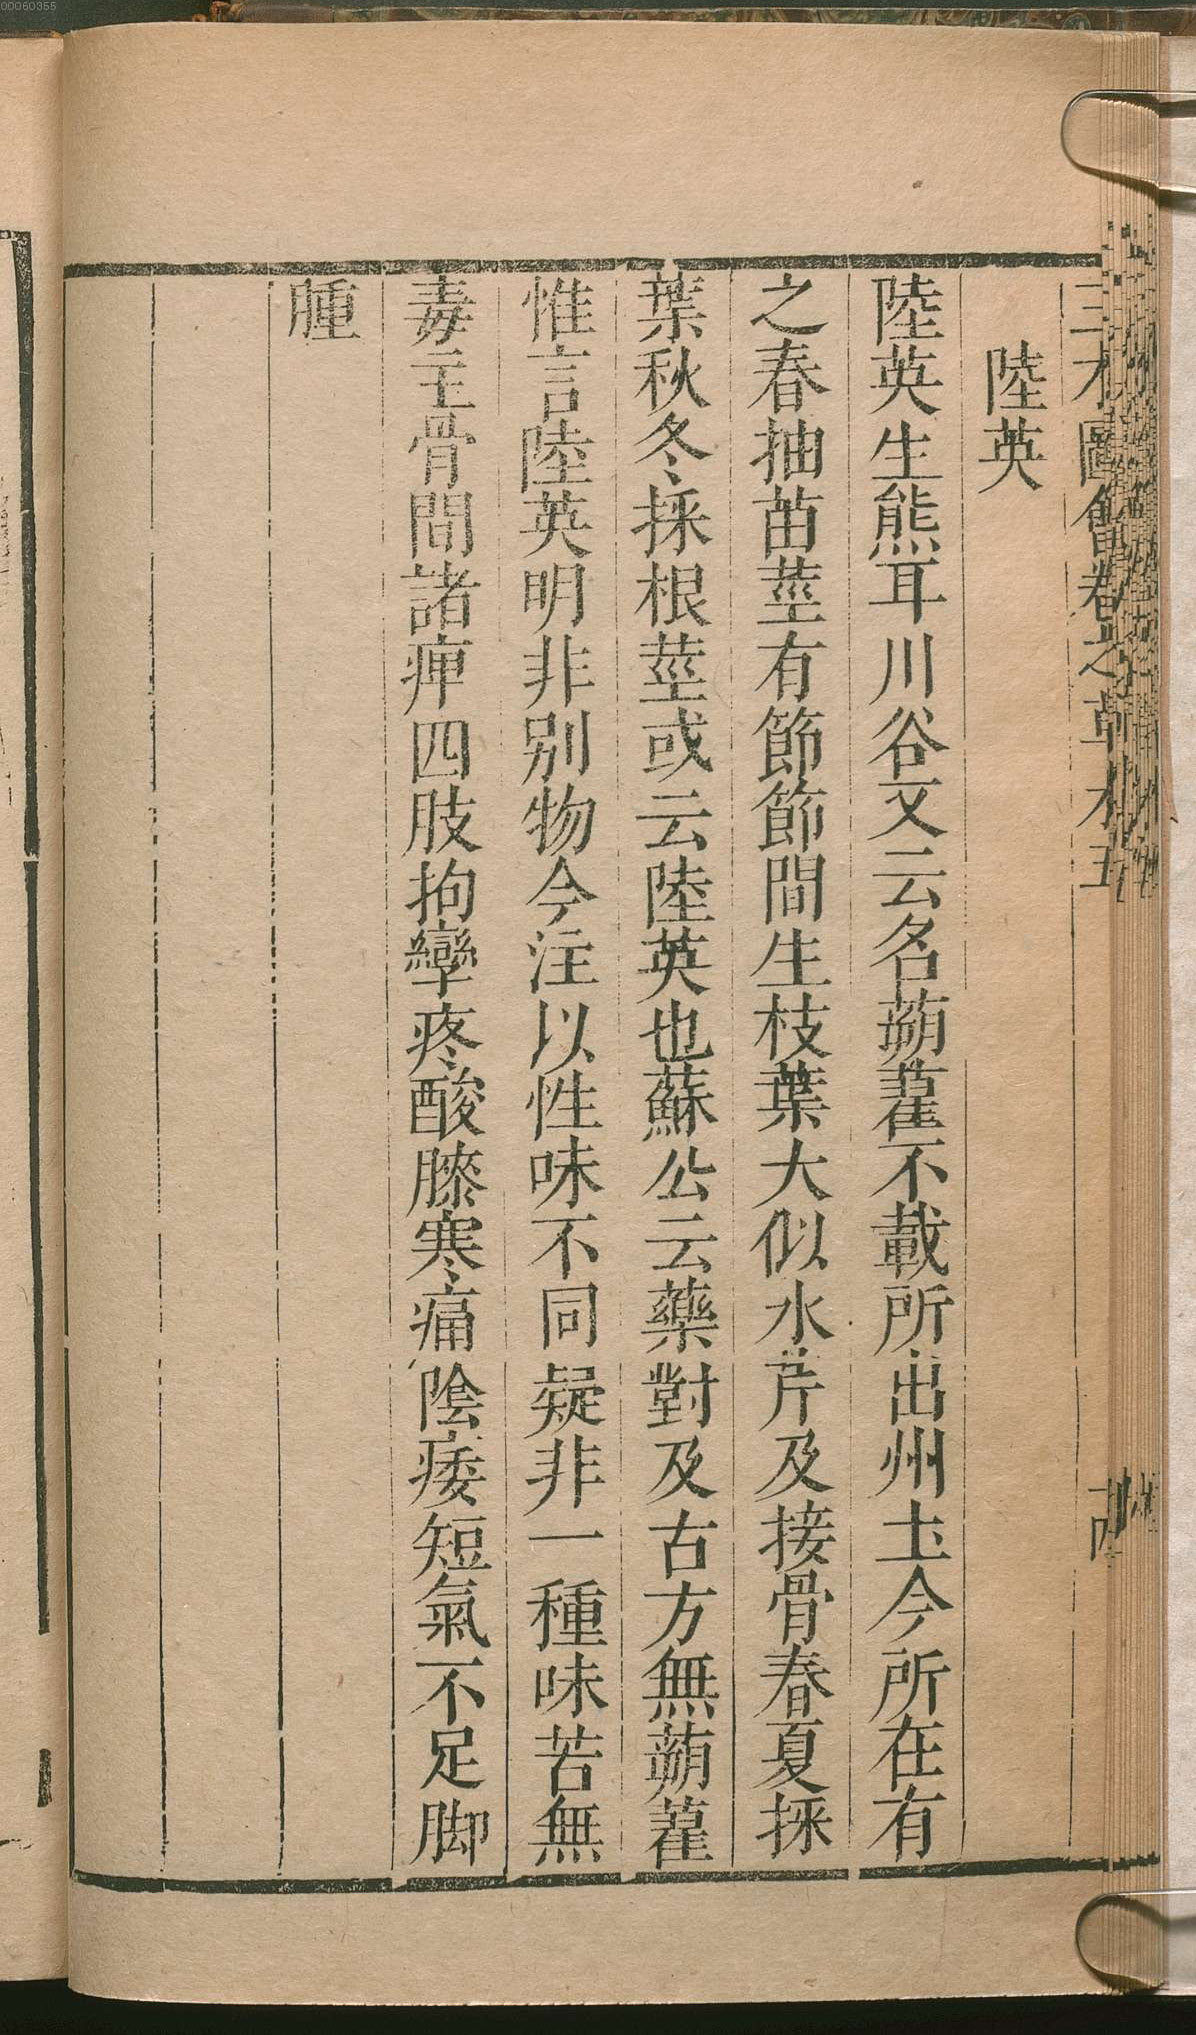 00060355
三才圖會卷之草木五
陸英
陸英生熊耳川谷又云名蒴藋不載所出州土今所在有
之春抽苗莖有節節間生枝葉大似水芹及接骨春夏採
葉秋冬採根莖或云陸英也蘇公云藥對及古方無蒴藋
惟言陸英明非別物今注以性味不同疑非一種味苦無
毒主骨間諸痺四肢拘攣疼酸膝寒痛陰痿短氣不足脚
腫